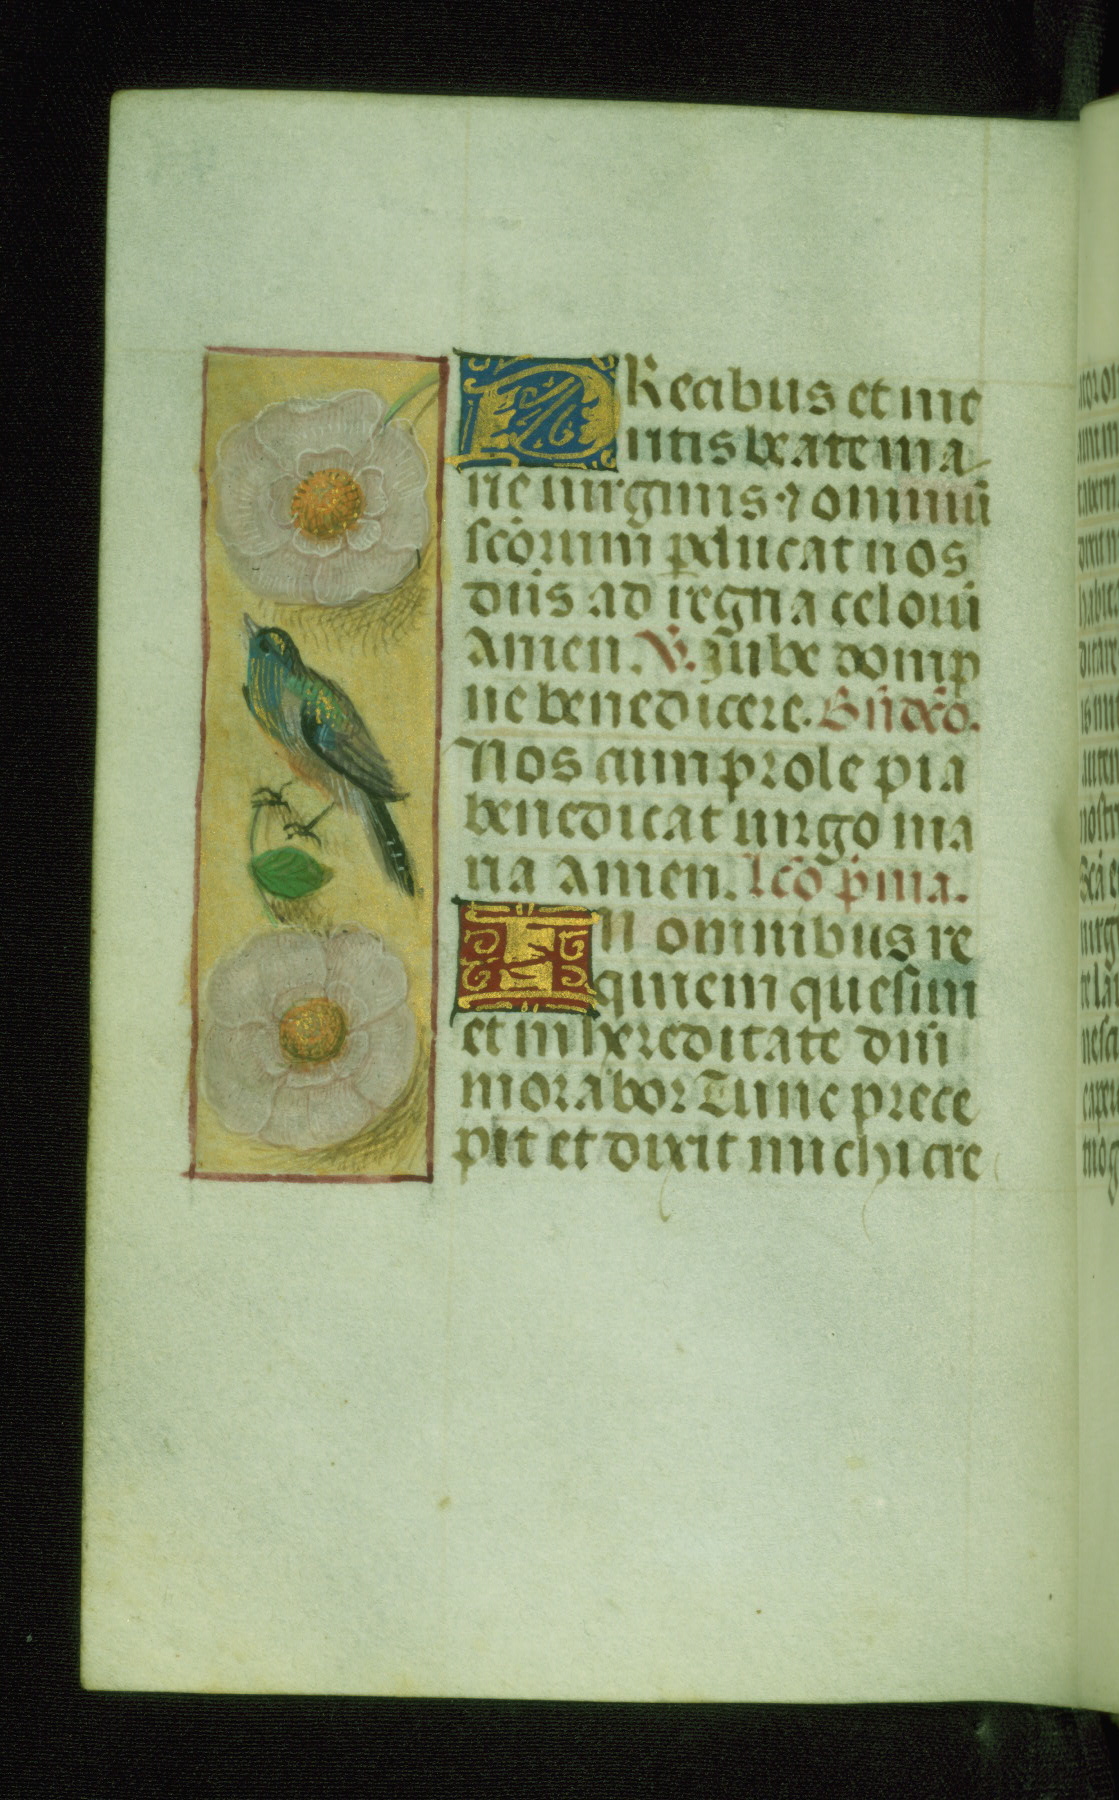 PRecibus et me
ritis beate ma
rie uirginis · ⁊ omniū
scōrum ꝑducat nos
dn̄s ad regna celorū
Amen. ℣. Jube domp
ne benedicere. Bn̄dcō.
Nos cum prole pia
benedicat uirgo ma
ria Amen. Lcō p̄ma.
IN omnibus re
quiem quesiui
et in hereditate dn̄i
morabor Tunc prece
pit et dixit michi cre